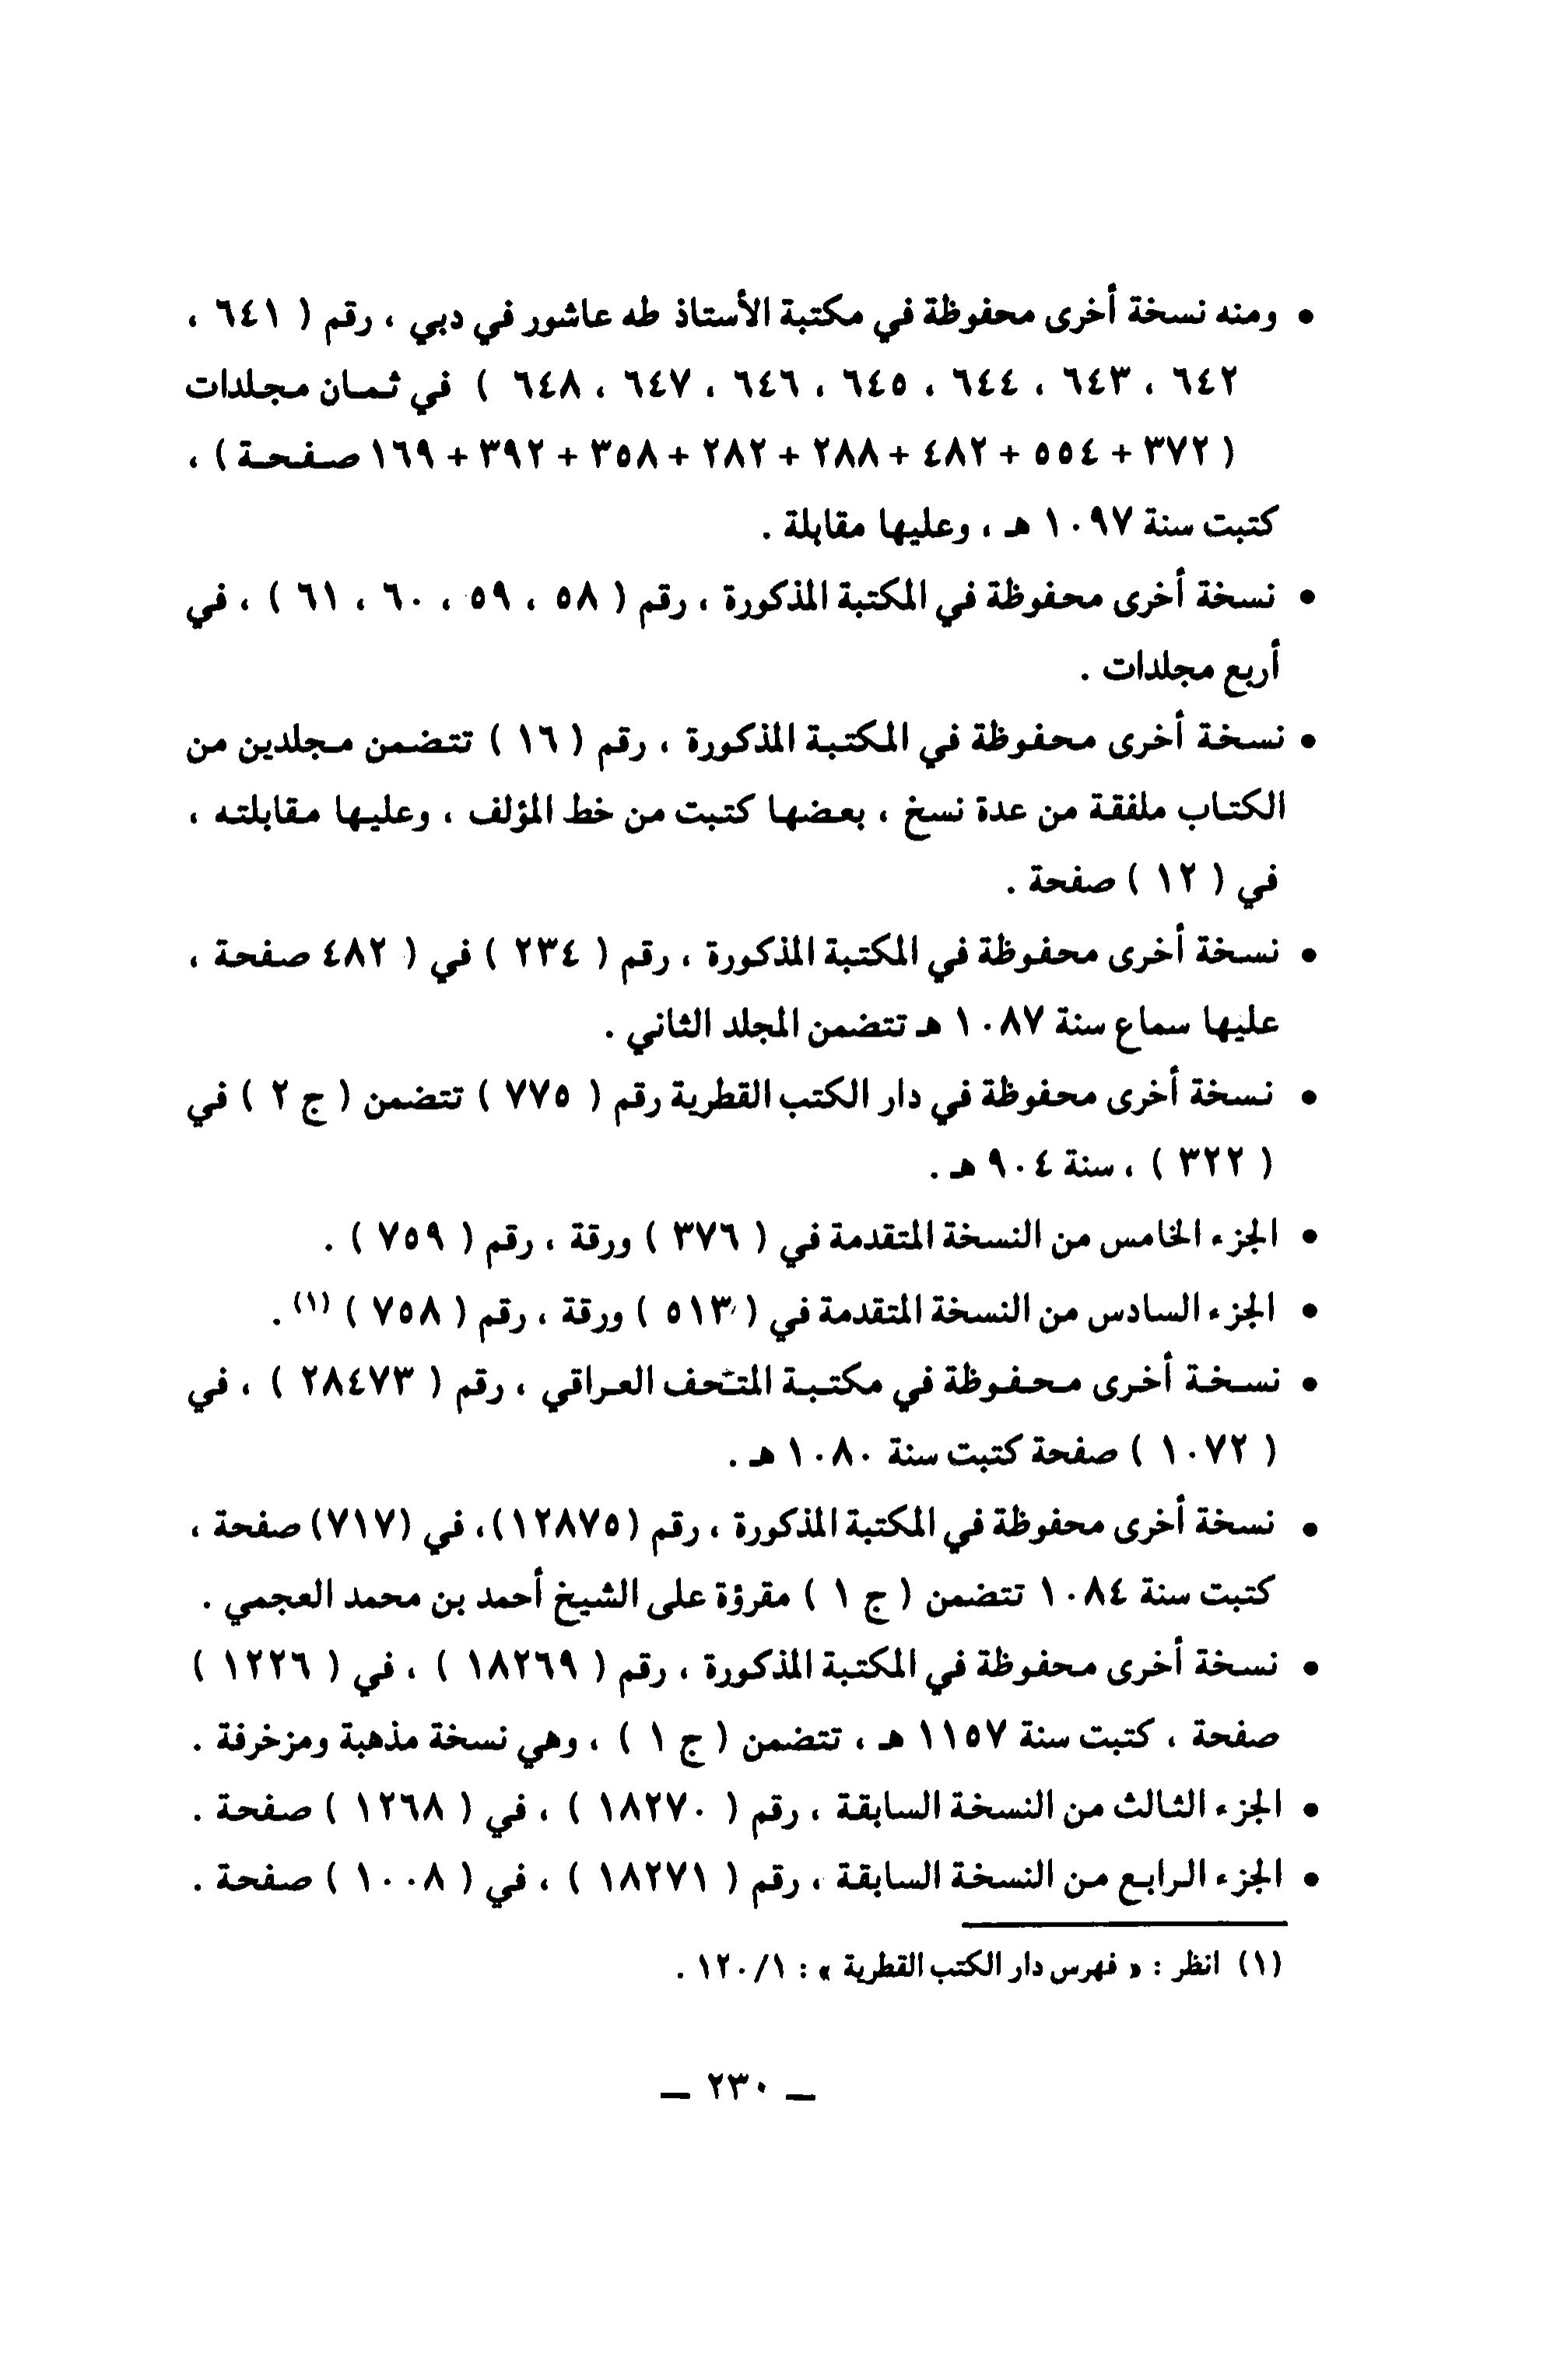 • ومنه نسخة أخرى محفوظة في مكتبة الأستاذ طه عاشور في دبي ، رقم ( ٦٤١ ،
٦٤٢ ، ٦٤٣ ، ٦٤٤ ، ٦٤٥ ، ٦٤٦ ، ٦٤٧ ، ٦٤٨ ) في ثمان مجلدات
( ٣٧٢ + ٥٥٤ + ٤٨٢ + ٢٨٨ + ٢٨٢ + ٣٥٨ + ٣٩٢ + ١٦٩ صفحة ) ،
كتبت سنة ١٠٩٧ هـ ، وعليها مقابلة .
• نسخة أخرى محفوظة في المكتبة المذكورة ، رقم ( ٥٨ ، ٥٩ ، ٦٠ ، ٦١ ) ، في
أربع مجلدات .
• نسخة أخرى محفوظة في المكتبة المذكورة ، رقم ( ١٦ ) تتضمن مجلدين من
الكتاب ملفقة من عدة نسخ ، بعضها كتبت من خط المؤلف ، وعليها مقابلته ،
في ( ١٢ ) صفحة .
• نسخة أخرى محفوظة في المكتبة المذكورة ، رقم ( ٢٣٤ ) في ( ٤٨٢ صفحة ،
عليها سماع سنة ١٠٨٧ هـ تتضمن المجلد الثاني .
• نسخة أخرى محفوظة في دار الكتب القطرية رقم ( ٧٧٥ ) تتضمن ( ج ٢ ) في
( ٣٢٢ ) ، سنة ٩٠٤ هـ .
• الجزء الخامس من النسخة المتقدمة في ( ٣٧٦ ) ورقة ، رقم ( ٧٥٩ ) .
• الجزء السادس من النسخة المتقدمة في ( ٥١٣ ) ورقة ، رقم ( ٧٥٨ ) (١) .
• نسخة أخرى محفوظة في مكتبة المتحف العراقي ، رقم ( ٢٨٤٧٣ ) ، في
( ١٠٧٢ ) صفحة كتبت سنة ١٠٨٠ هـ .
• نسخة أخرى محفوظة في المكتبة المذكورة ، رقم (١٢٨٧٥)، في (٧١٧) صفحة ،
كتبت سنة ١٠٨٤ تتضمن ( ج ١ ) مقرؤة على الشيخ أحمد بن محمد العجمي .
• نسخة أخرى محفوظة في المكتبة المذكورة ، رقم ( ١٨٢٦٩ ) ، في ( ١٢٢٦ )
صفحة ، كتبت سنة ١١٥٧ هـ ، تتضمن ( ج ١ ) ، وهي نسخة مذهبة ومزخرفة .
• الجزء الثالث من النسخة السابقة ، رقم ( ١٨٢٧٠ ) ، في ( ١٢٦٨ ) صفحة .
• الجزء الرابع من النسخة السابقة ، رقم ( ١٨٢٧١ ) ، في ( ١٠٠٨ ) صفحة .
(١) انظر : « فهرس دار الكتب القطرية » : ١/ ١٢٠ .
– ٢٣٠ –